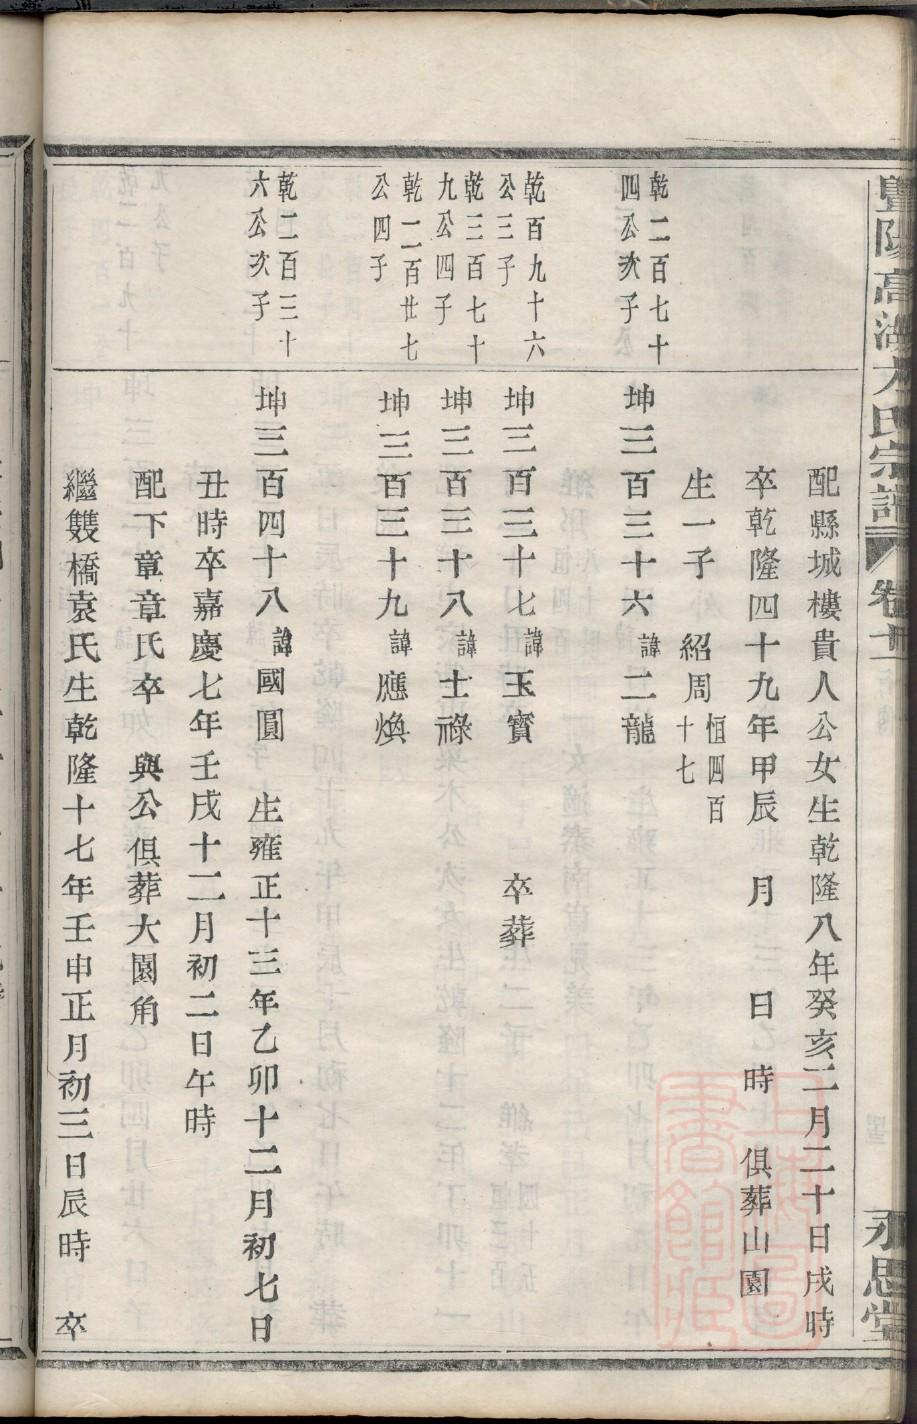 配縣城樓貴人公女生乾隆八年癸亥二月二十日戌時
卒乾隆四十九年甲辰 月 日 時 俱葬山園
生一子 紹周 恒四百十七
乾二百七十四公次子
坤三百三十六 諱二龍
乾百九十六公三子
坤三百三十七 諱玉寶 卒葬
乾三百七十九公四子
坤三百三十八 諱士祿
乾二百廿七公四子
坤三百三十九 諱應煥
乾二百三十六公次子
坤三百四十八 諱國圓 生雍正十三年乙卯十二月初七日
丑時卒嘉慶七年壬戌十二月初二日午時
配下章章氏卒 與公俱葬大園角
繼雙橋袁氏生乾隆十七年壬申正月初三日辰時 卒
暨陽高湖 氏宗譜 卷 永思堂